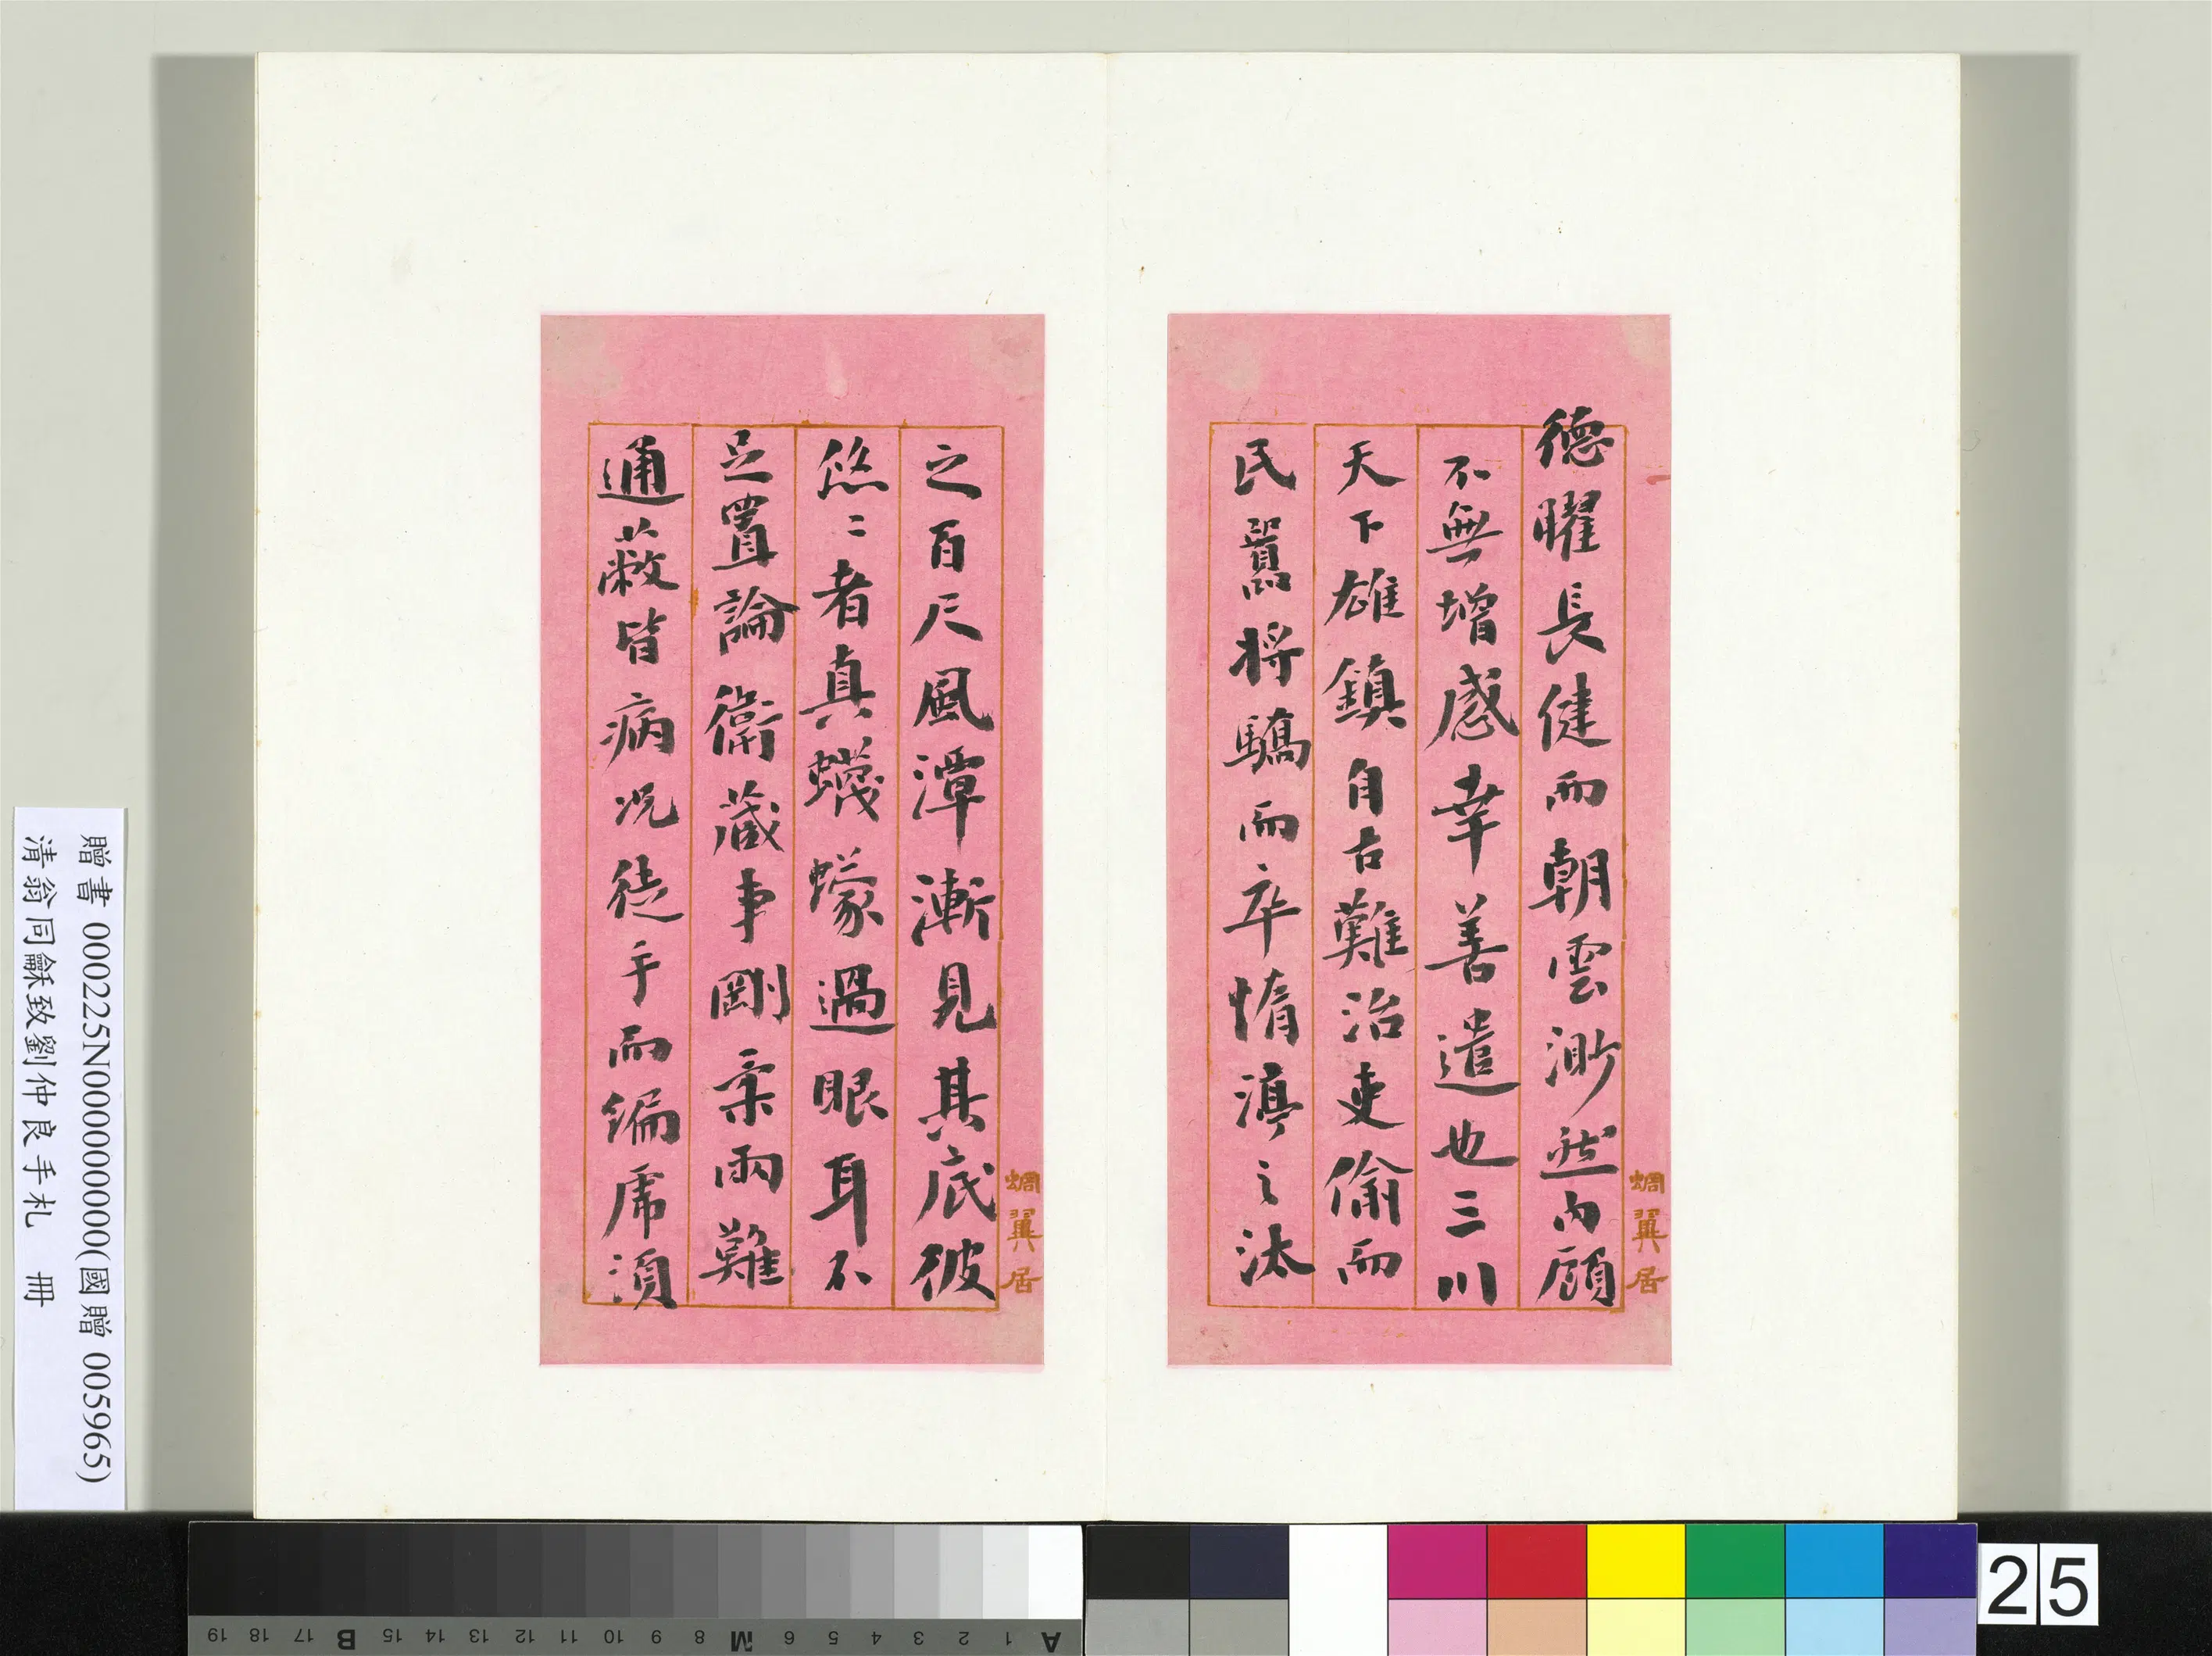 德曜長健而朝雲渺然內顧
不無增感幸善遣也三川
天下雄鎮自古難治吏偷而
民囂將驕而卒惰滓之汰
蜩翼居
之百尺風潭漸見其底彼
悠〻者真蠛蠓過眼耳不
足置論衛藏事剛柔兩難
通蔽皆病況徒手而編虎須
蜩翼居
贈書 000225N000000000(國贈 005965)
清翁同龢致劉仲良手札 冊
A 1 2 3 4 5 6 M 8 9 10 11 12 13 14 15 B 17 18 19
25